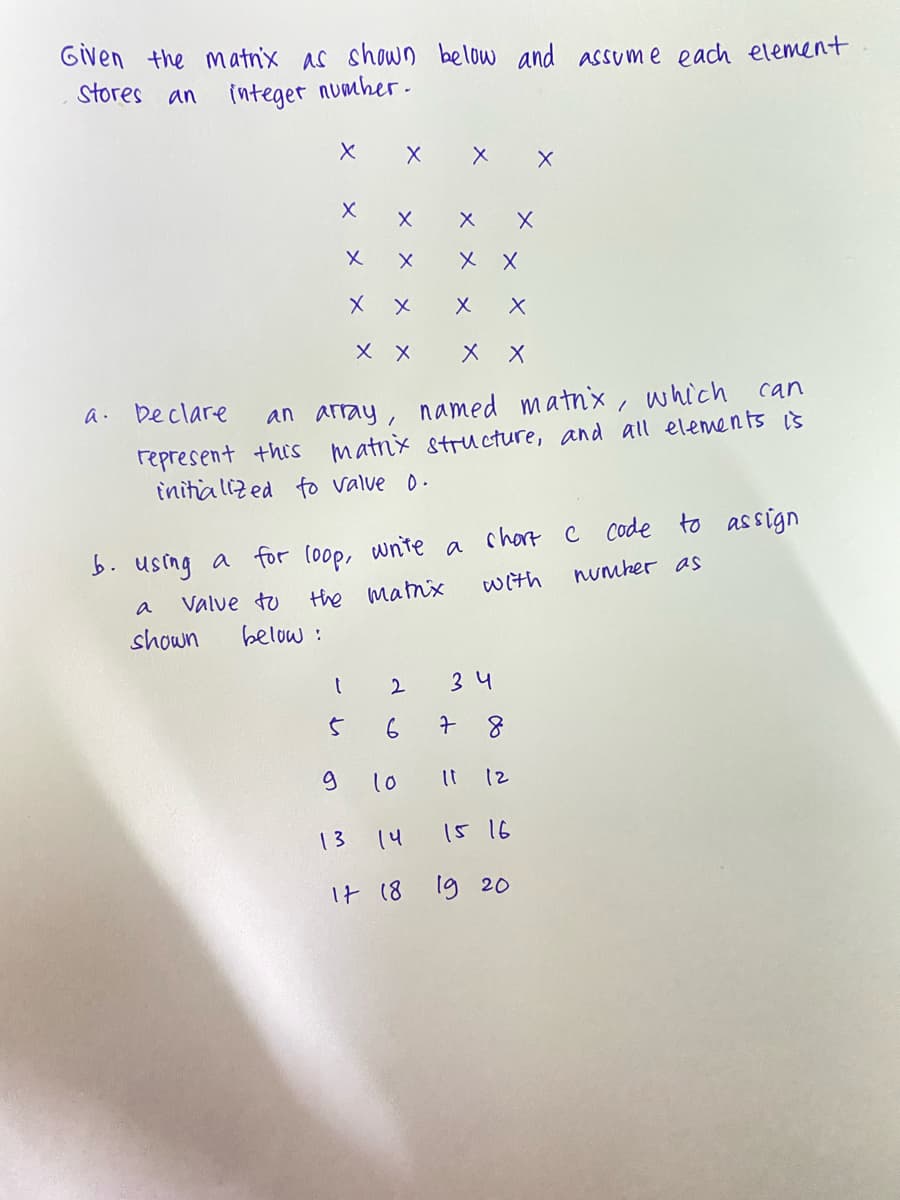 Given the matrix as shown below and assume each element
stores an integer number.
X X X X
X X X X
X X X X
X X X X
X X X X
a. Declare an array, named matrix, which can
represent this matrix structure, and all elements is
initialized to value 0.
b. using a for loop, write a short c code to assign
a value to the matrix with number as
shown below :
1 2 3 4
5 6 7 8
9 10 11 12
13 14 15 16
17 18 19 20